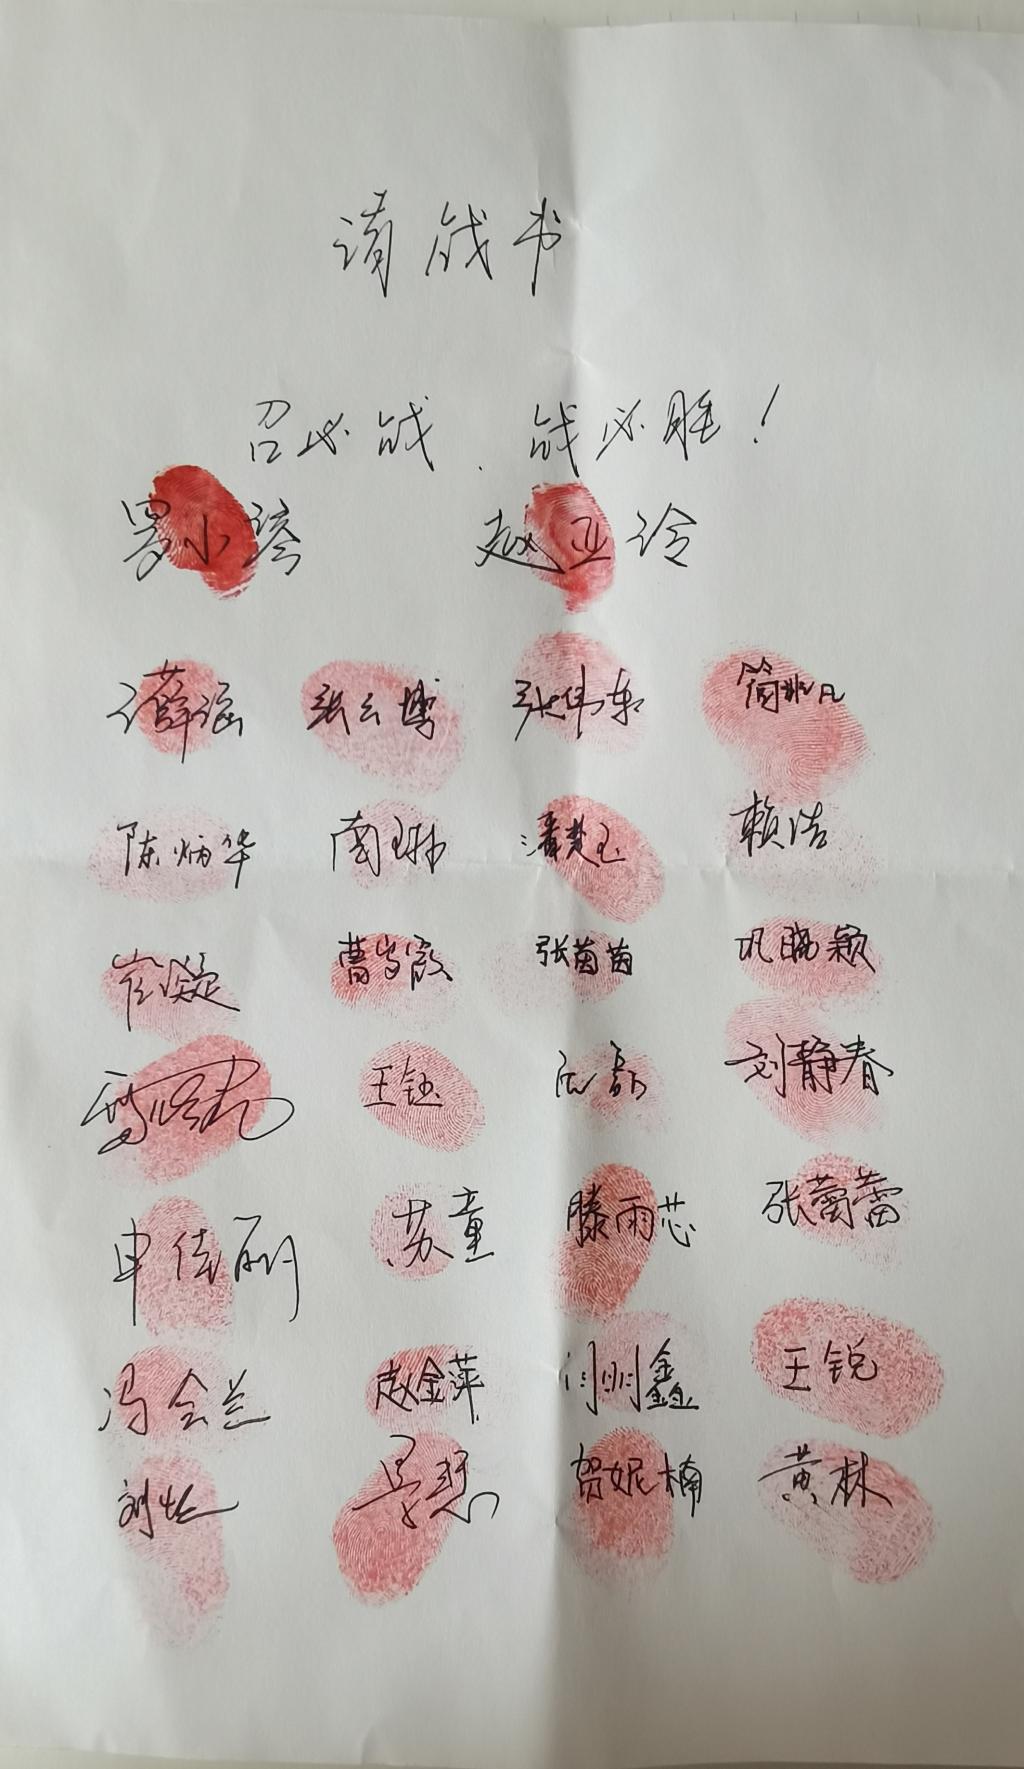 请战书
召必战、战必胜!
罗小 赵亚
薛涵 张云博 张伟 简
陈炳华 南琳 潘楚玉 赖洁
崔凝 曹 霞 张茵茵 巩晓颖
王钰 磊 刘静春
申佳丽 苏童 滕雨芯 张蕾蕾
冯会兰 赵金萍 闫刚鑫 王锐
刘 贺妮楠 黄林